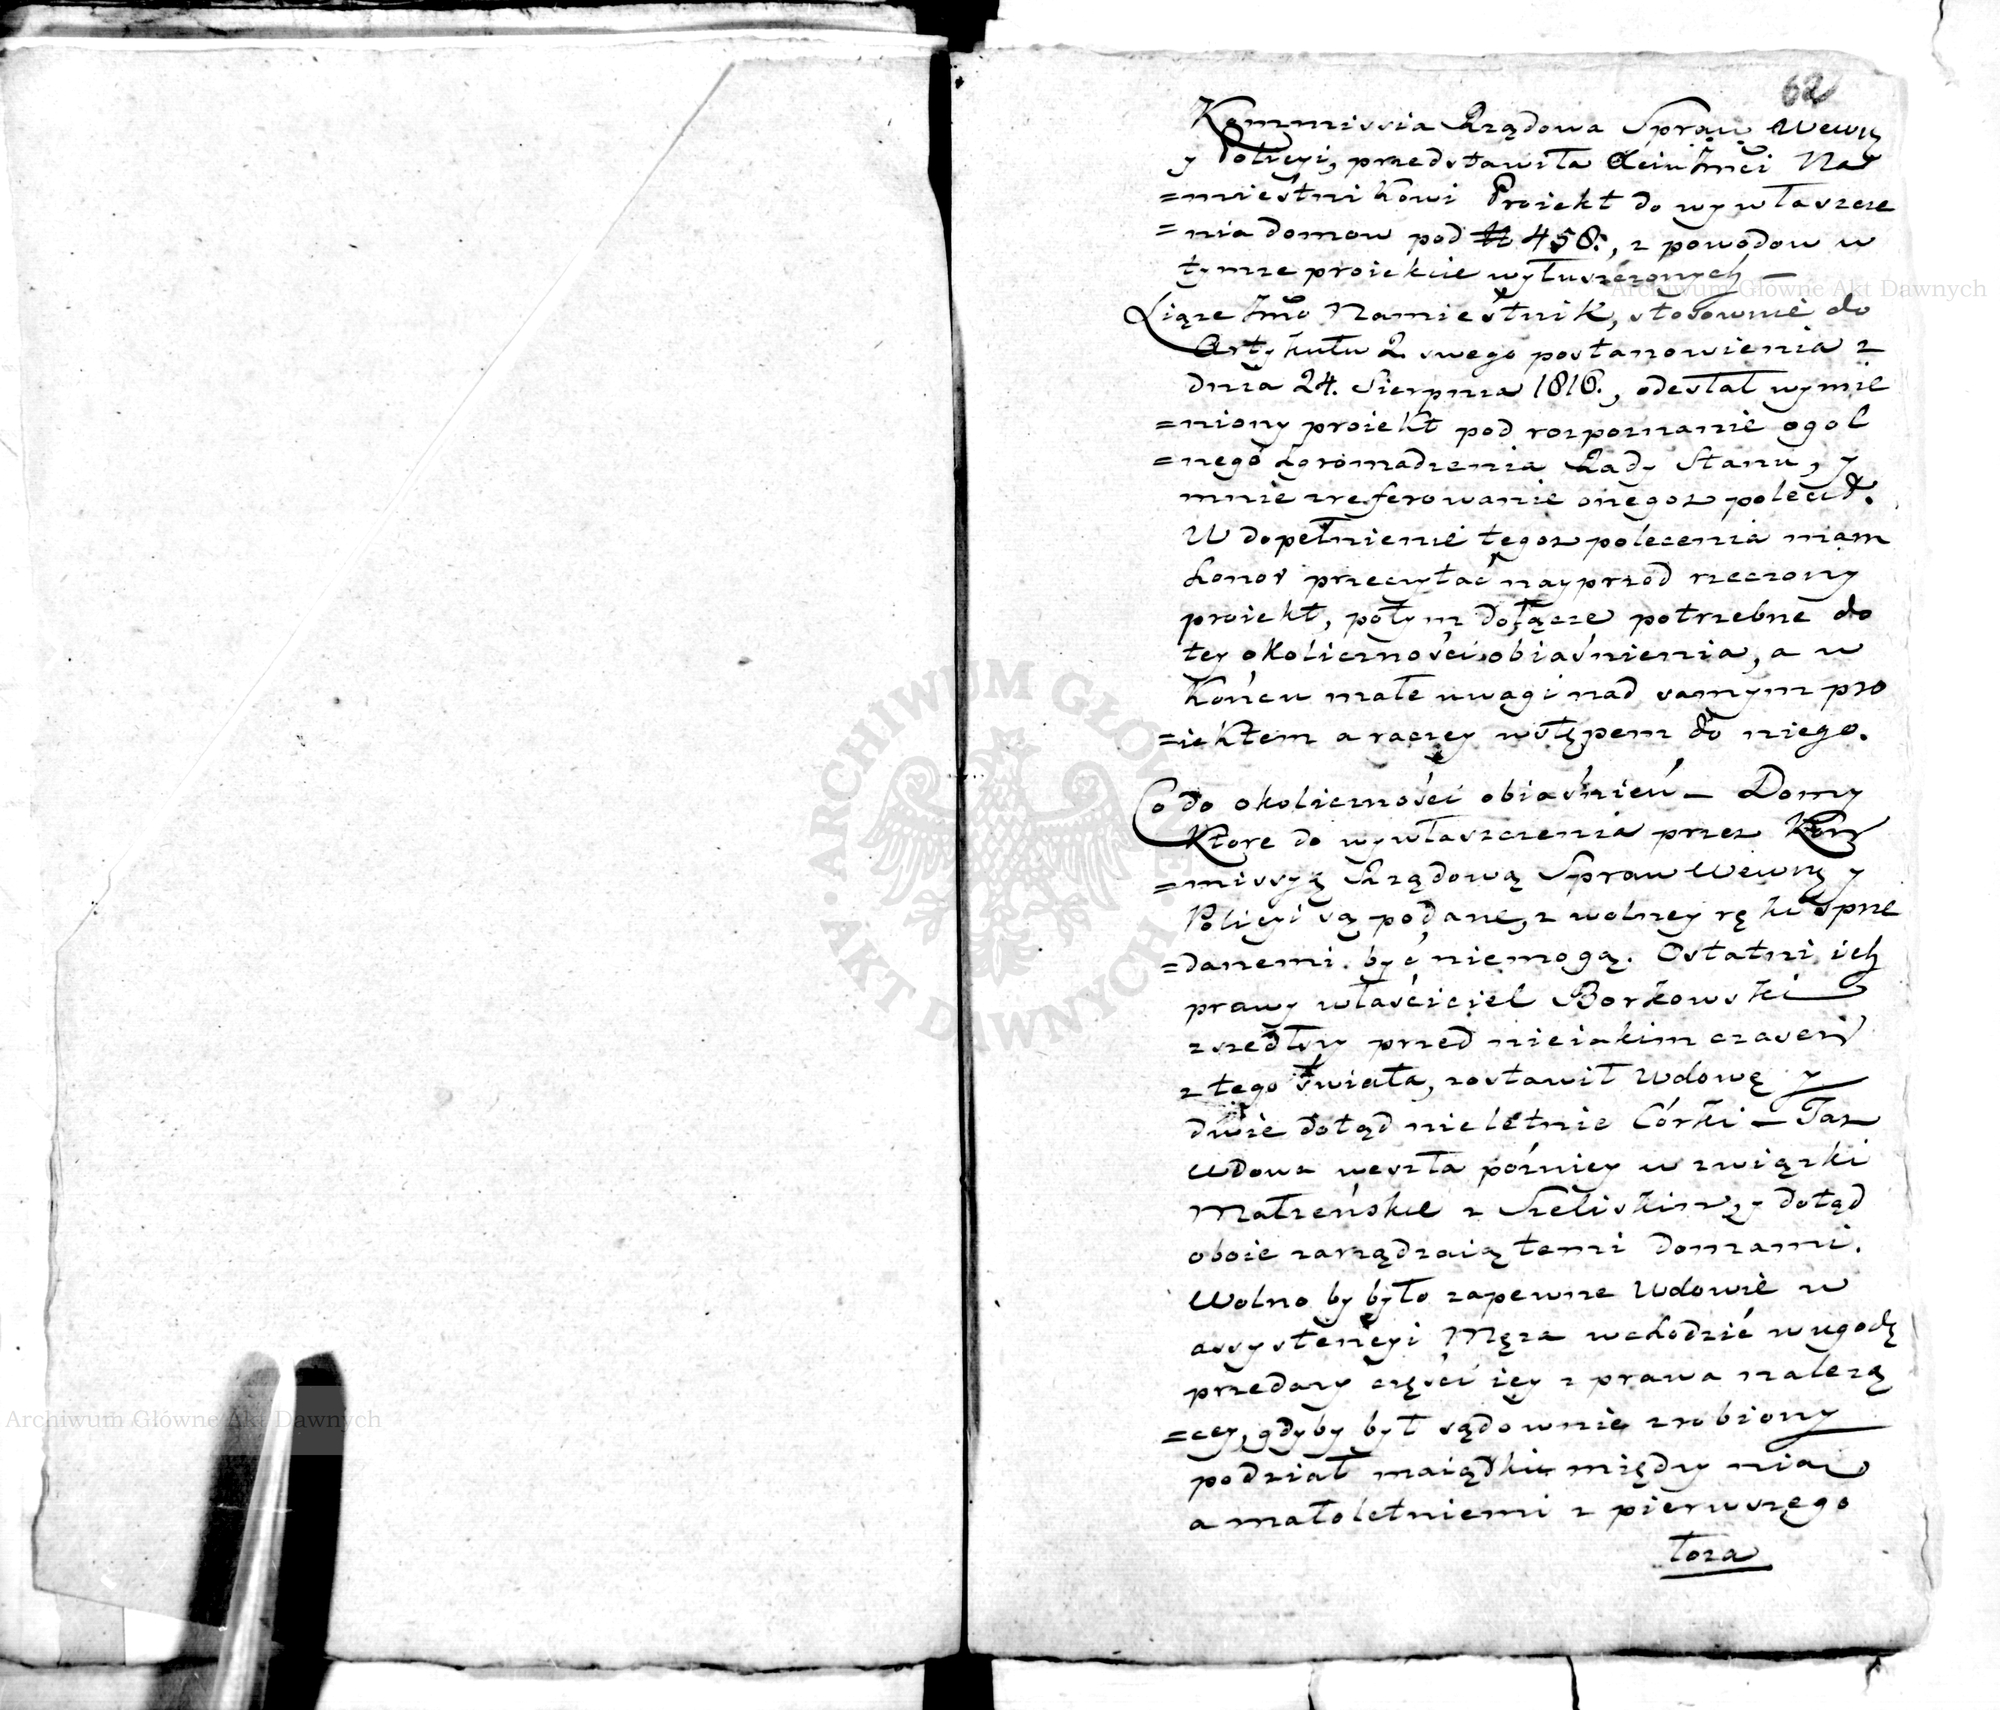 62
Kommissia Rządowa Spraw Wewn
y Policyi, przedstawiła Xciu Jmci Na
=miestnikowi Proiekt do wywłaszcze
=nia domow pod N 458., z powodow w
tymze proiekcie wyłuszczonych —
Xiąze Jmc Namiestnik, stosownie do
Artykułu 2. swego postanowienia z
dnia 24. Sierpnia 1816., odesłał wymie
=niony proiekt pod rozpoznanie ogol
=nego Zgromadzenia Rady Stanu, y
mnie zreferowanie onegoz polecił.
W dopełnienie tegoz polecenia mam
honor przeczytać nayprzod rzeczony
proiekt, potym dołącze potrzebne do
tey okoliczności obiaśnienia, a w
Końcu małe uwagi nad samym pro
=iektem a raczey wstępem do niego.
Co do okoliczności obiaśnień — Domy
Ktore do wywłaszczenia przez Kom
=missyą Rządową Spraw Wewnę y
Policyi są podane, z wolney ręki sprze
=danemi być niemogą. Ostatni ich
prawy właściciel Borkowski
zszedłszy przed nieiakim czasem
z tego świata, zostawił Wdowę y
dwie dotąd nieletnie Córki — Taz
Wdowa weszła pózniey w związki
Małzeńskie z Szeliskim, y dotąd
oboie zarządzaią temi domami.
Wolno by było zapewne Wdowie w
assystencyi Męza wchodzić w ugodę
przedazy części iey z prawa nalezą
=cey, gdyby był sądownie zrobiony
podział maiątku między nią
a małoletniemi z pierwszego
łoza
Archiwum Główne Akt Dawnych
Archiwum Główne Akt Dawnych
ARCHIWUM GŁÓWNE
AKT DAWNYCH